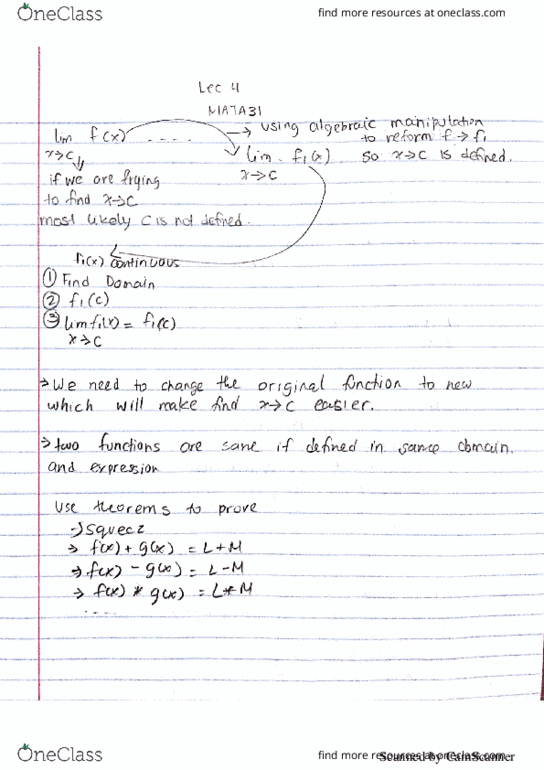 OneClass
find more resources at oneclass.com
Lec 4
MATA31
lim f(x) .... → using algebraic manipulation
x→c
to reform f → f₁
lim f₁(x) so x→c is defined.
x→c
if we are trying
to find x→c
most likely c is not defined.
f₁(x) continuous
① Find Domain
② f₁(c)
③ lim f₁(x) = f₁(c)
x→c
→ We need to change the original function to new
which will make find x→c easier.
→ two functions are same if defined in same domain.
and expression
Use theorems to prove
→ squeez
→ f(x) + g(x) = L + M
→ f(x) - g(x) = L - M
→ f(x) * g(x) = L * M
....
OneClass
find more resources at oneclass.com
Scanned by CamScanner